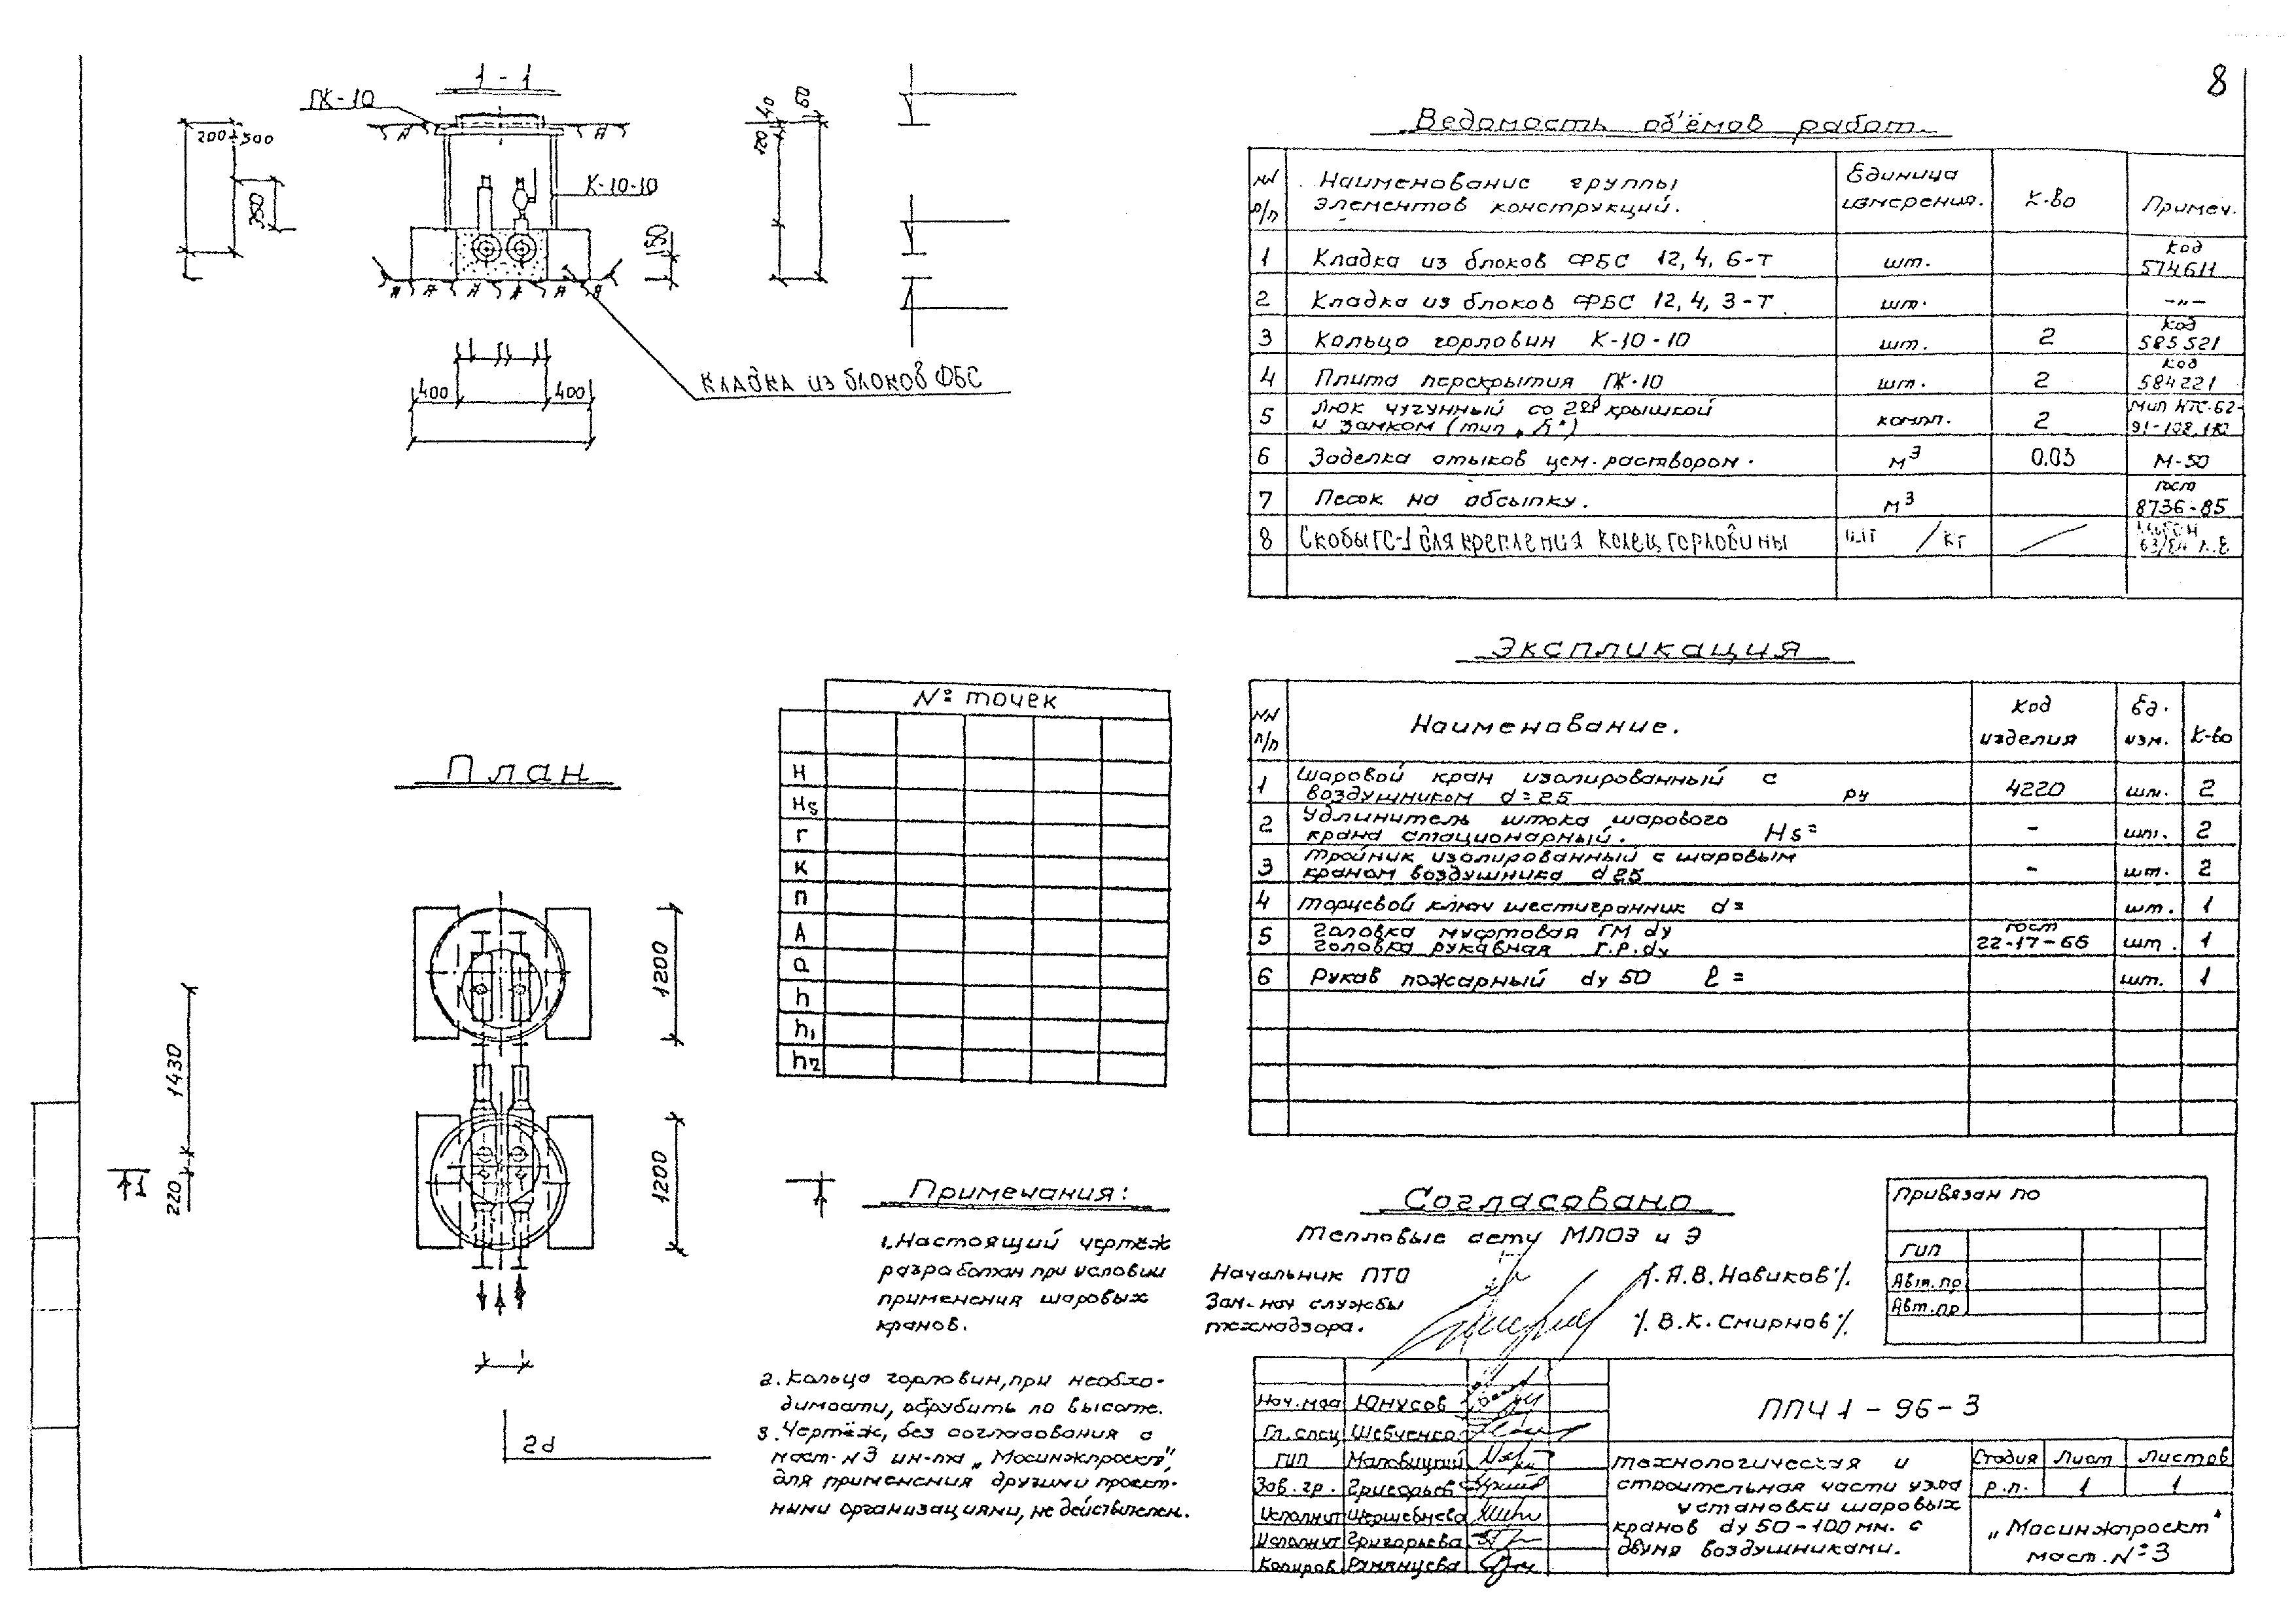 8
1 - 1
ПК-10
200÷500
К-10-10
120
40
60
КЛАДКА ИЗ БЛОКОВ ФБС
400
400
Ведомость об'ёмов работ.
NN п/п
Наименование группы элементов конструкций.
Единица измерения.
К-во
Примеч.
1 Кладка из блоков ФБС 12,4,6-Т шт. Код 574611
2 Кладка из блоков ФБС 12,4,3-Т шт. -"-
3 Кольцо горловин К-10-10 шт. 2 Код 585521
4 Плита перекрытия ПК-10 шт. 2 Код 584221
5 Люк чугунный со 2ой крышкой
и замком (тип „Л") компл. 2
6 Заделка стыков цем. раствором. м3 0.03 М-50
7 Песок на обсыпку. м3 ГОСТ 8736-85
8 Скобы ГС-1 для крепления колец горловины шт / кг
Экспликация
NN п/п
Наименование.
Код изделия
Ед. изм.
К-во
1 Шаровой кран изолированный с
воздушником d=25 Ру 4220 шт. 2
2 Удлинитель штока шарового
крана стационарный. Hs= - шт. 2
3 Тройник изолированный с шаровым
краном воздушника d25 - шт. 2
4 Торцевой ключ шестигранник d= шт. 1
5 Головка муфтовая ГМ dу
Головка рукавная Г.Р. dу ГОСТ 22-17-66 шт. 1
6 Рукав пожарный dу 50 ℓ= шт. 1
№ точек
H
Hs
Г
К
П
А
а
h
h1
h2
План
1200
1430
1200
220
1
2d
Примечания:
1. Настоящий чертёж
разработан при условии
применения шаровых
кранов.
2. Кольца горловин, при необхо-
димости, обрубить по высоте.
3. Чертёж, без согласования с
маст. N3 ин-та „Мосинжпроект",
для применения другими проект-
ными организациями, не действителен.
Согласовано
Тепловые сети МЛОЭ и Э
Начальник ПТО /.А.В.Новиков/.
Зам. нач службы
технадзора. /.В.К.Смирнов/.
Привязан по
ГИП
Авт.пр
Авт.пр
Нач.мас Юнусов
Гл.спец Шевченко
ГИП Маловицкий
Зав.гр. Григорьев
Исполнит
Исполнит Григорьева
Копиров Румянцева
ППЧ1-96-3
Технологическая и
строительная части узла
установки шаровых
кранов dу 50-100мм. с
двумя воздушниками.
Стадия Лист Листов
Р.П. 1 1
„Мосинжпроект"
маст. №3